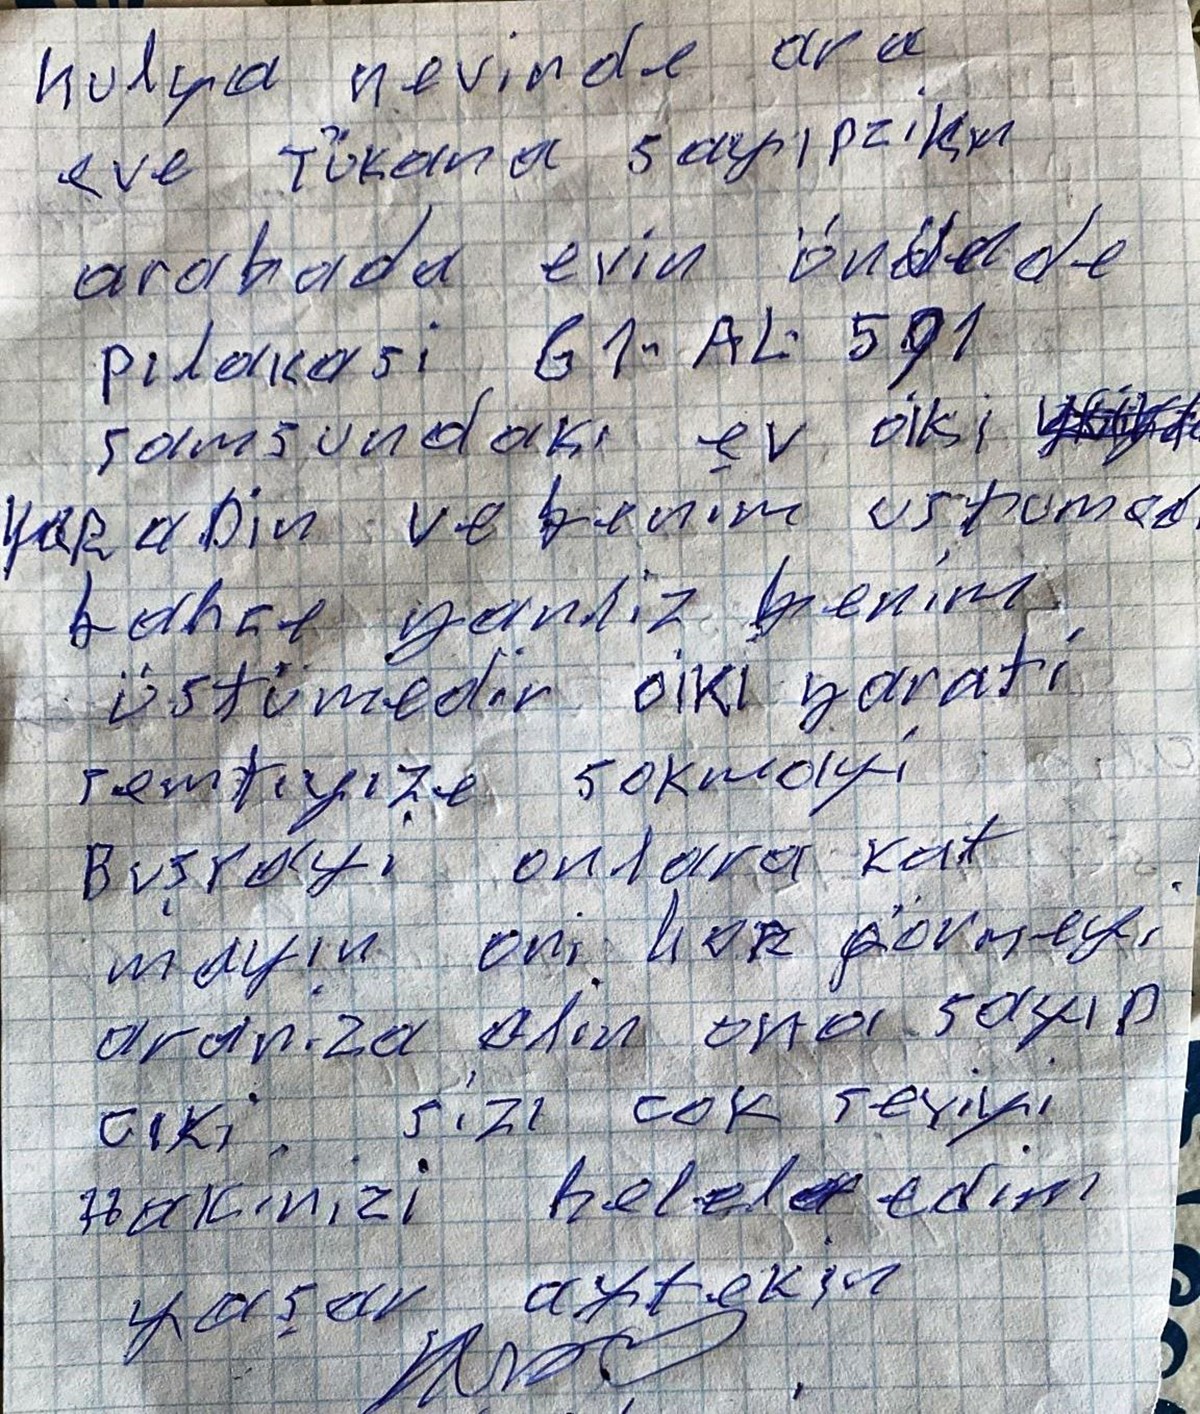 hulya nevinde ara
eve Tükana sayıp
arabada evin önünde
pilakasi 61. AL. 591
samsundakı ev öiki
yapadin ve benim ustumed
bahce yanliz benim
üstümedir öiki yarati
semtiyize sokmayi
Buşrayi onlara kat
mayın oni hor görmeyi
araniza alin ona sayıp
cıki. sizi cok seviyi
Hakinizi helel edim
yaşar aytekin